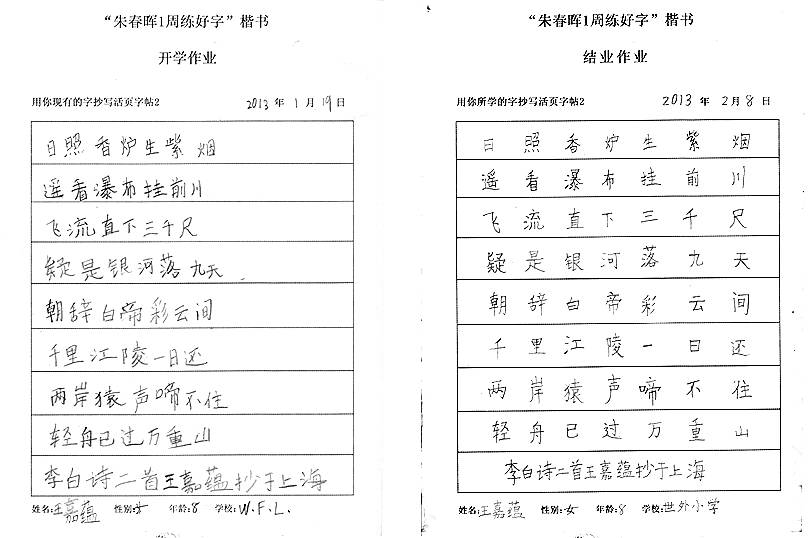 “朱春晖1周练好字”楷书
开学作业
用你现有的字抄写活页字帖2 2013 年 1 月 19 日
日照香炉生紫烟
遥看瀑布挂前川
飞流直下三千尺
疑是银河落九天
朝辞白帝彩云间
千里江陵一日还
两岸猿声啼不住
轻舟已过万重山
李白诗二首王嘉蕴抄于上海
姓名:王嘉蕴 性别:女 年龄:8 学校:W.F.L.
“朱春晖1周练好字”楷书
结业作业
用你所学的字抄写活页字帖2 2013 年 2 月 8 日
日照香炉生紫烟
遥看瀑布挂前川
飞流直下三千尺
疑是银河落九天
朝辞白帝彩云间
千里江陵一日还
两岸猿声啼不住
轻舟已过万重山
李白诗二首王嘉蕴抄于上海
姓名:王嘉蕴 性别:女 年龄:8 学校:世外小学